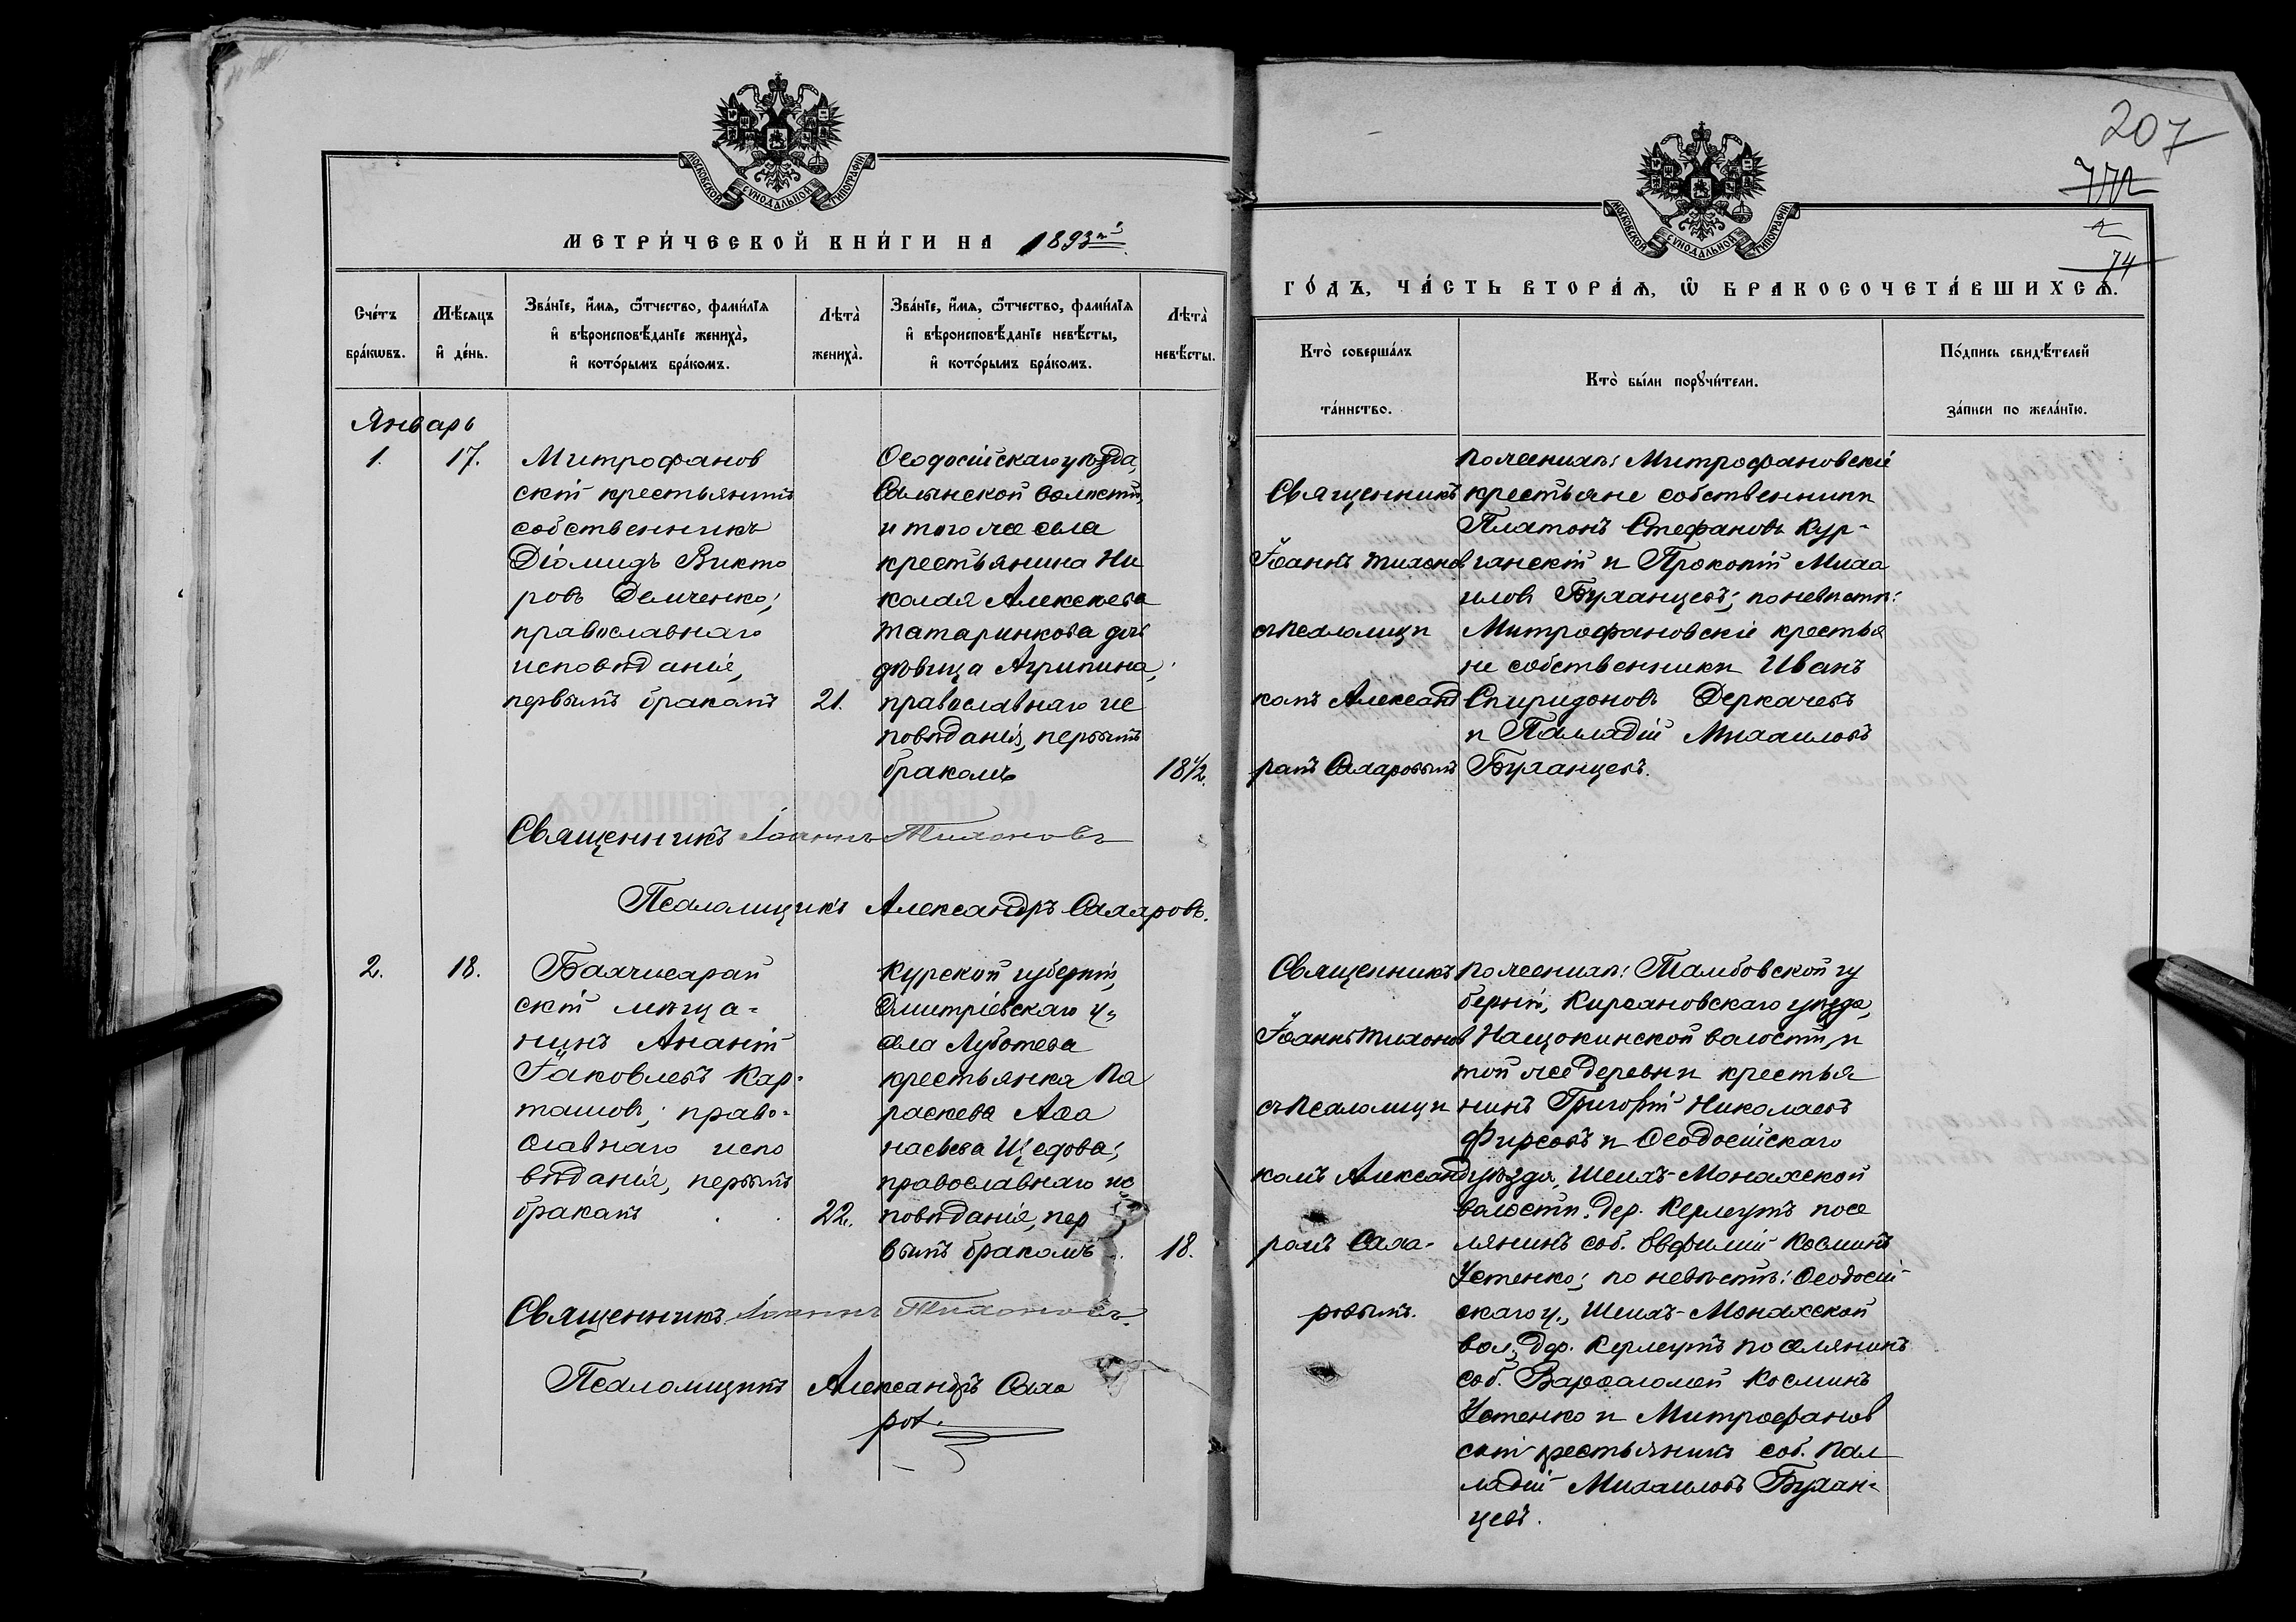 МОСКОВСКОЙ СУНОДАЛЬНОЙ ТИПОГРАФІИ
МЕТРИ́ЧЕСКОЙ КНИ́ГИ НА 1893 й
Сче́тъ бра́кѡвъ.
Мѣ́сяцъ и҆ де́нь.
Зва́нїе, и҆́мя, ѻ҆́тчество, фами́лїя
и҆ вѣроисповѣ́данїе жениха̀,
и҆ кото́рымъ бра́комъ.
Лѣта̀ жениха̀.
Зва́нїе, и҆́мя, ѻ҆́тчество, фами́лїя
и҆ вѣроисповѣ́данїе невѣ́сты,
и҆ кото́рымъ бра́комъ.
Лѣта̀ невѣ́сты.
Январь
1.
17.
Митрофанов
скій крестьянинъ
собственникъ
Діомидъ Викто
ровъ Демченко;
православнаго
исповѣданія,
первымъ бракомъ
21.
Ѳеодосійскаго уѣзда,
Салынской волости,
и того же села
крестьянина Ни
колая Алексѣева
Татаринкова доч
дѣвица Агрипина;
православнаго ис
повѣданія, первымъ
бракомъ
18½.
Священникъ Іоаннъ Тихоновъ
Псаломщикъ Александръ Сахаровъ.
2.
18.
Бахчисарай
скій мѣща=
нинъ Ананій
Іаковлевъ Кар-
ташовъ; право-
славнаго испо
вѣданія, первымъ
бракомъ
22.
Курской губерніи,
Дмитріевскаго у.,
села Луботева
крестьянка Па
раскева Аѳа
насьева Щедова;
православнаго ис
повѣданія, пер
вымъ бракомъ
18.
Священникъ Іоаннъ Тихоновъ.
Псаломщикъ Александръ Саха
ров.
207
772
2
74
МОСКОВСКОЙ СУНОДАЛЬНОЙ ТИПОГРАФІИ
ГО́ДЪ, ЧА́СТЬ ВТОРА́Ѧ, Ѡ҆ БРАКОСОЧЕТА́ВШИХСѦ.
Кто̀ соверша́лъ та́инство.
Кто̀ бы́ли порꙋчи́тели.
По́дпись свидѣ́телей за́писи по жела́нїю.
Священникъ
Іоаннъ Тихонов
съ псаломщи
комъ Александ
ромъ Сахаровымъ
По женихѣ: Митрофановскіе
крестьяне собственники
Платонъ Стефановъ Кур-
ганскій и Прокопій Миха
иловъ Буханцевъ; по невѣстѣ:
Митрофановскіе крестья
не собственники Иванъ
Спиридоновъ Деркачевъ
и Палладій Михаиловъ
Буханцевъ.
Священникъ
Іоаннъ Тихонов
съ псаломщи
комъ Александ
ромъ Саха-
ровымъ.
По женихѣ: Тамбовской гу
берніи, Кирсановскаго уѣзда,
Нащокинской волости, и
той же деревни крестья
нинъ Григорій Николаевъ
Фирсовъ и Ѳеодосійскаго
уѣзда, Шейхъ-Монахской
волости, дер. Керлеутъ посе
лянинъ соб. Евфимій Косминъ
Устенко; по невѣстѣ: Ѳеодосій-
скаго у., Шейхъ-Монахской
вол., дер. Керлеутъ поселянинъ
соб. Варѳоломей Косминъ
Устенко и Митрофанов
скій крестьянинъ соб. Пал
ладій Михаиловъ Бухан-
цевъ.